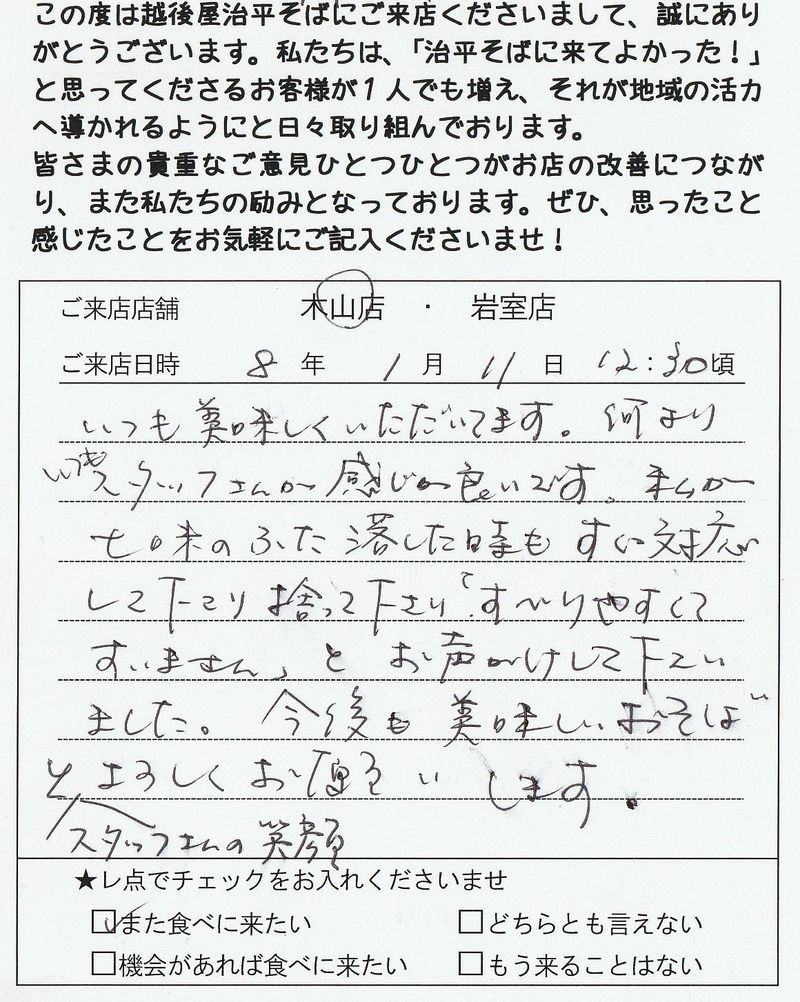 この度は越後屋治平そばにご来店くださいまして、誠にあり
がとうございます。私たちは、「治平そばに来てよかった！」
と思ってくださるお客様が1人でも増え、それが地域の活力
へ導かれるようにと日々取り組んでおります。
皆さまの貴重なご意見ひとつひとつがお店の改善につなが
り、また私たちの励みとなっております。ぜひ、思ったこと
感じたことをお気軽にご記入くださいませ！
ご来店店舗 木山店 ・ 岩室店
ご来店日時 8 年 1 月 11 日 12:30頃
いつも美味しくいただいてます。何より
いつもスタッフさんが感じが良いです。私が
七味のふた落した時もすぐ対応
して下さり捨って下さり「すべりやすくて
すいません」とお声がけして下さい
ました。今後も美味しいおそば
とよろしくお願いします。
スタッフさんの笑顔
★レ点でチェックをお入れくださいませ
☑また食べに来たい □どちらとも言えない
□機会があれば食べに来たい □もう来ることはない